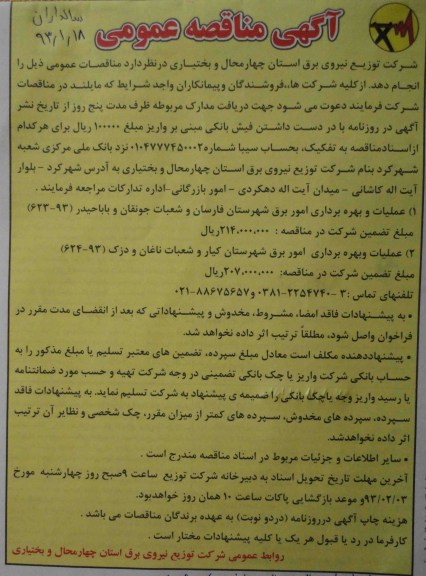 سالداران
۹۳/۱/۱۸
آگهی مناقصه عمومی
شرکت توزیع نیروی برق استان چهارمحال و بختیاری درنظردارد مناقصات عمومی ذیل را
انجام دهد. ازکلیه شرکت ها،،فروشندگان وپیمانکاران واجد شرایط که مایلند در مناقصات
شرکت فرمایند دعوت می شود جهت دریافت مدارک مربوطه ظرف مدت پنج روز از تاریخ نشر
آگهی در روزنامه با در دست داشتن فیش بانکی مبنی بر واریز مبلغ ۱۰۰۰۰۰ ریال برای هرکدام
ازاسنادمناقصه به تفکیک، بحساب سیبا شماره۰۱۰۴۷۷۷۴۵۰۰۰۲ نزد بانک ملی مرکزی شعبه
شهرکرد بنام شرکت توزیع نیروی برق استان چهارمحال و بختیاری به آدرس شهرکرد - بلوار
آیت اله کاشانی - میدان آیت اله دهکردی - امور بازرگانی-اداره تدارکات مراجعه فرمایند .
۱) عملیات و بهره برداری امور برق شهرستان فارسان و شعبات جونقان و باباحیدر (۹۳-۶۲۳)
مبلغ تضمین شرکت در مناقصه : ۲۱۴,۰۰۰,۰۰۰ریال
۲) عملیات وبهره برداری امور برق شهرستان کیار و شعبات ناغان و دزک (۹۳-۶۲۴)
مبلغ تضمین شرکت در مناقصه: ۲۰۷,۰۰۰,۰۰۰ریال
تلفنهای تماس :۳ -۲۲۵۴۷۴۰-۰۳۸۱ و۸۸۶۷۵۶۵۷-۰۲۱
• به پیشنهادات فاقد امضا، مشروط، مخدوش و پیشنهاداتی که بعد از انقضای مدت مقرر در
فراخوان واصل شود، مطلقاً ترتیب اثر داده نخواهد شد.
• پیشنهاددهنده مکلف است معادل مبلغ سپرده، تضمین های معتبر تسلیم یا مبلغ مذکور را به
حساب بانکی شرکت واریز یا چک بانکی تضمینی در وجه شرکت تهیه و حسب مورد ضمانتنامه
یا رسید واریز وجه یاچک بانکی را ضمیمه ی پیشنهاد به شرکت تسلیم نماید. به پیشنهادات فاقد
سپرده، سپرده های مخدوش، سپرده های کمتر از میزان مقرر، چک شخصی و نظایر آن ترتیب
اثر داده نخواهدشد.
• سایر اطلاعات و جزئیات مربوط در اسناد مناقصه مندرج است .
آخرین مهلت تاریخ تحویل اسناد به دبیرخانه شرکت توزیع ساعت ۹صبح روز چهارشنبه مورخ
۹۳/۰۲/۰۳و موعد بازگشایی پاکات ساعت ۱۰ همان روز خواهدبود.
هزینه چاپ آگهی درروزنامه (دردو نوبت) به عهده برندگان مناقصات می باشد .
کارفرما در رد یا قبول هر یک یا کلیه پیشنهادات مختار است .
روابط عمومی شرکت توزیع نیروی برق استان چهارمحال و بختیاری